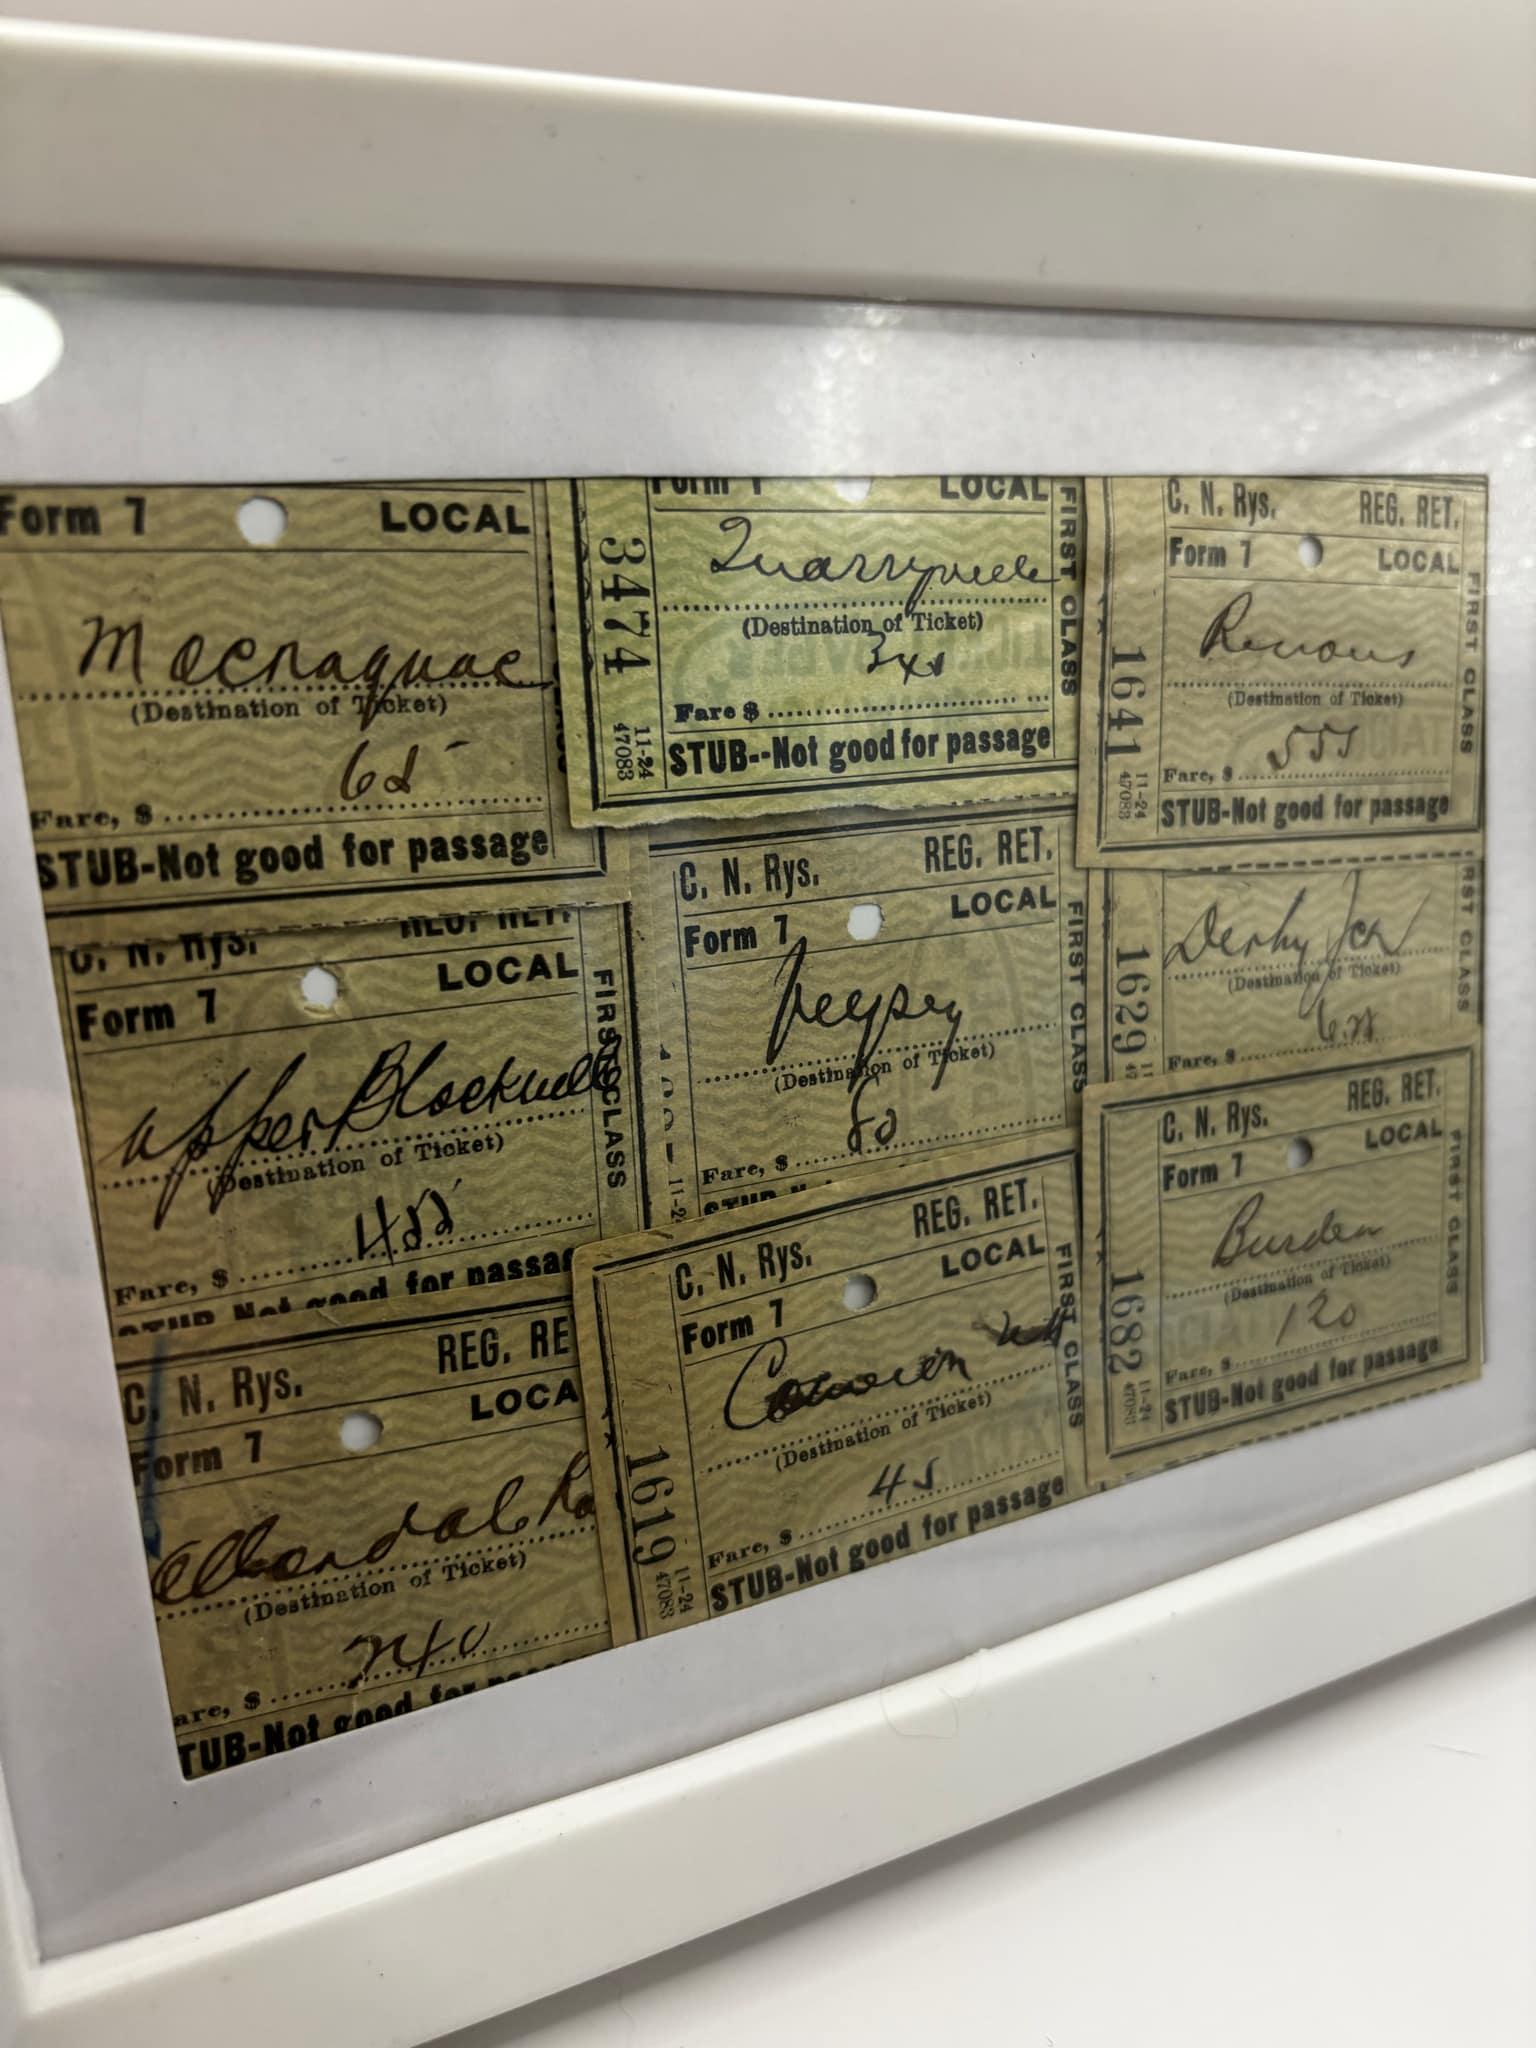 Form 7 LOCAL
Macnaquac
(Destination of Ticket)
65
Fare, $
STUB-Not good for passage
Form 7 LOCAL
3474
Quarryville
(Destination of Ticket)
345
Fare $
STUB--Not good for passage
FIRST CLASS
11-24
47083
C. N. Rys. REG. RET.
Form 7 LOCAL
1641
Renous
(Destination of Ticket)
555
Fare, $
STUB-Not good for passage
FIRST CLASS
11-24
47083
C. N. Rys. REG. RET.
Form 7 LOCAL
Upper Blackville
(Destination of Ticket)
455
Fare, $
STUB-Not good for passag
FIRST CLASS
C. N. Rys. REG. RET.
Form 7 LOCAL
(Destination of Ticket)
80
Fare, $
FIRST CLASS
11-24
1629
Derby Jct
(Destination of Ticket)
Fare, $
RST CLASS
C. N. Rys. REG. RE
Form 7 LOCA
(Destination of Ticket)
240
are, $
TUB-Not good for passa
C. N. Rys. REG. RET.
Form 7 LOCAL
1619
(Destination of Ticket)
45
Fare, $
STUB-Not good for passage
FIRST CLASS
11-24
47083
C. N. Rys. REG. RET.
Form 7 LOCAL
1682
Burden
(Destination of Ticket)
120
Fare, $
STUB-Not good for passage
FIRST CLASS
11-24
47083